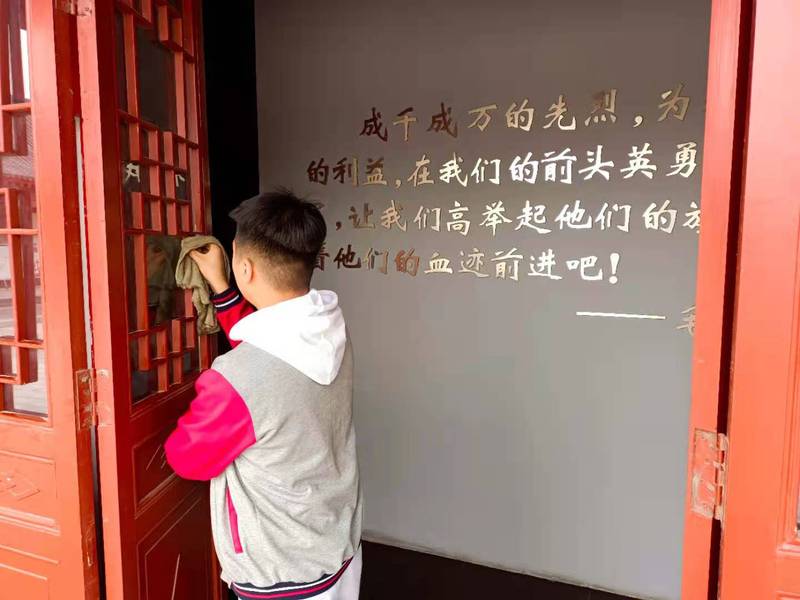 成千成万的先烈，为
的利益，在我们的前头英勇
，让我们高举起他们的
着他们的血迹前进吧！
——毛